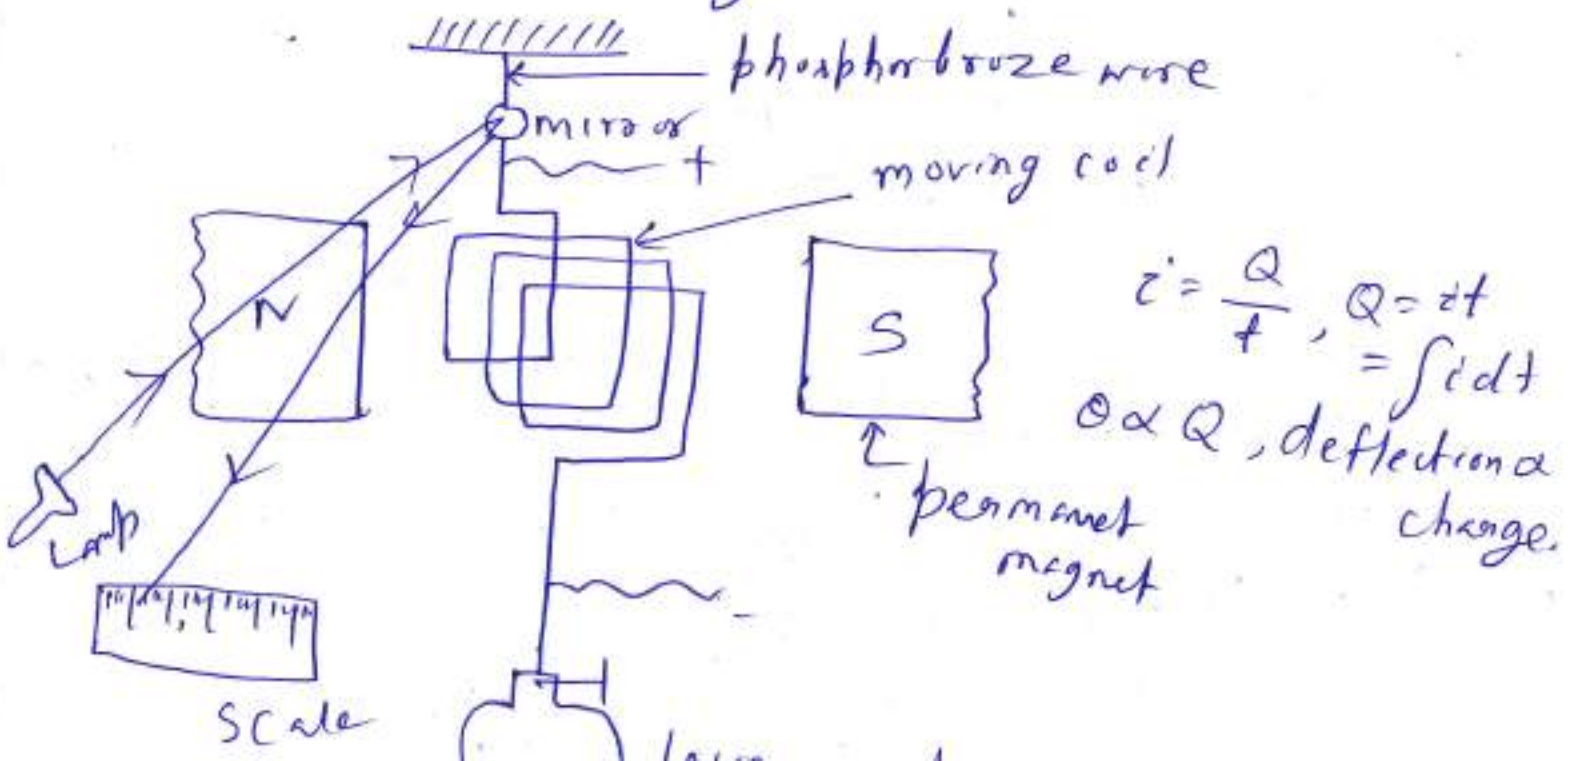 phosphorbroze wire
mirror
+
moving coil
N
S
i = Q/t, Q = it
= ∫idt
θ ∝ Q, deflection ∝
charge.
permanet
magnet
Lamp
-
Scale